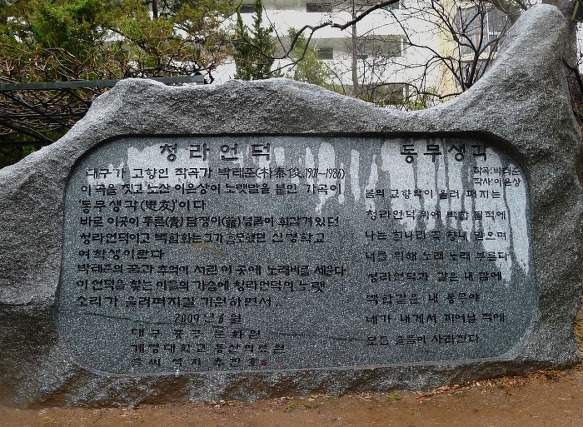 청라언덕
대구가 고향인 작곡가 박태준(朴泰俊, 1901-1986)
이 곡을 짓고 노산 이은상이 노랫말을 붙인 가곡이
'동무생각(思友)'이다
바로 이곳이 푸른(靑) 담쟁이(蘿) 넝쿨이 휘감겨 있던
청라언덕이고 백합화는 그가 흠모했던 신명학교
여학생이었다
박태준의 꿈과 추억이 서린 이 곳에 노래비를 세운다
이 언덕을 찾는 이들의 가슴에 청라언덕의 노랫
소리가 울려퍼지길 기원하면서
2009년 6월
대구 중구 문화원
계명대학교 동산의료원
글씨
동무생각
작곡:박태준
작사:이은상
봄의 교향악이 울려 퍼지는
청라언덕 위에 백합 필적에
나는 흰나리 꽃 향내 맡으며
너를 위해 노래 노래 부른다
청라언덕과 같은 내 맘에
백합같은 내 동무야
네가 내게서 피어날 적에
모든 슬픔이 사라진다